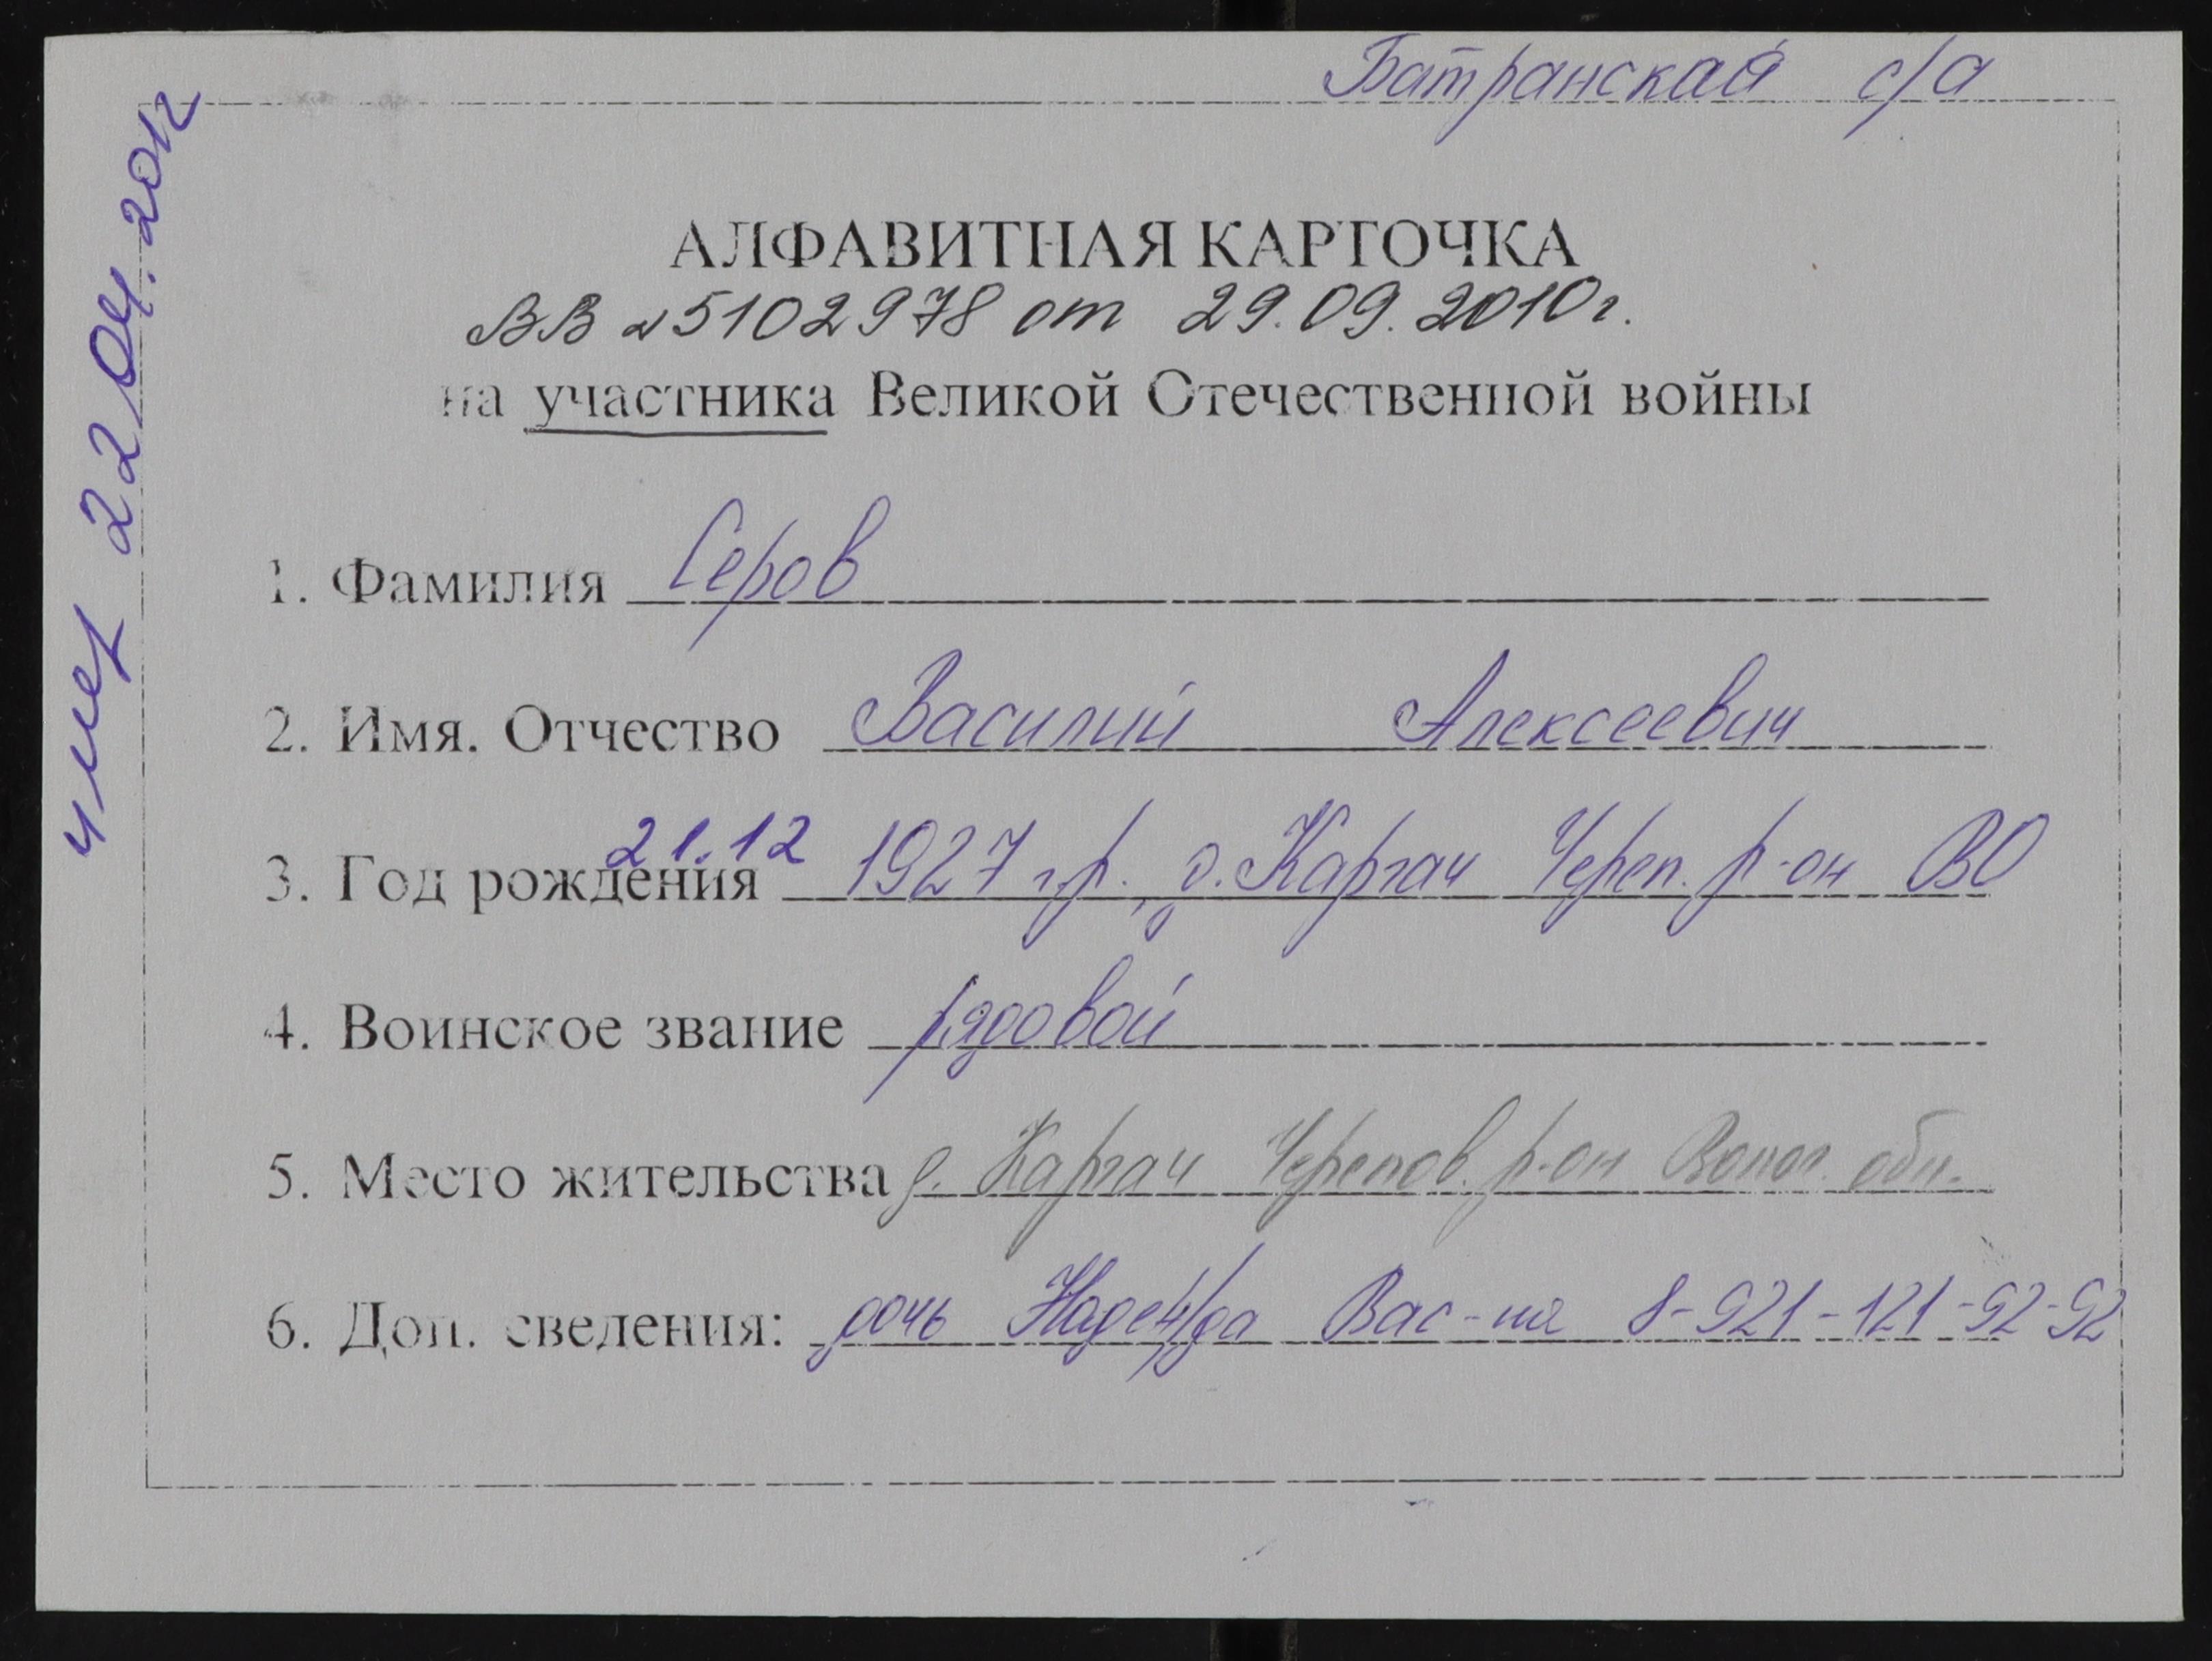 Батранская с/а
АЛФАВИТНАЯ КАРТОЧКА
ВВ № 5102978 от 29.09.2010г.
на участника Великой Отечественной войны
1. Фамилия Серов
2. Имя. Отчество Василий Алексеевич
21.12
3. Год рождения 1927 г.р., д. Каргач Череп. р-он ВО
4. Воинское звание рядовой
5. Место жительства д. Каргач Черепов. р-он Волог. обл.
6. Доп. сведения: дочь Надежда Вас-на 8-921-121-92-92
умер 22.04.2012